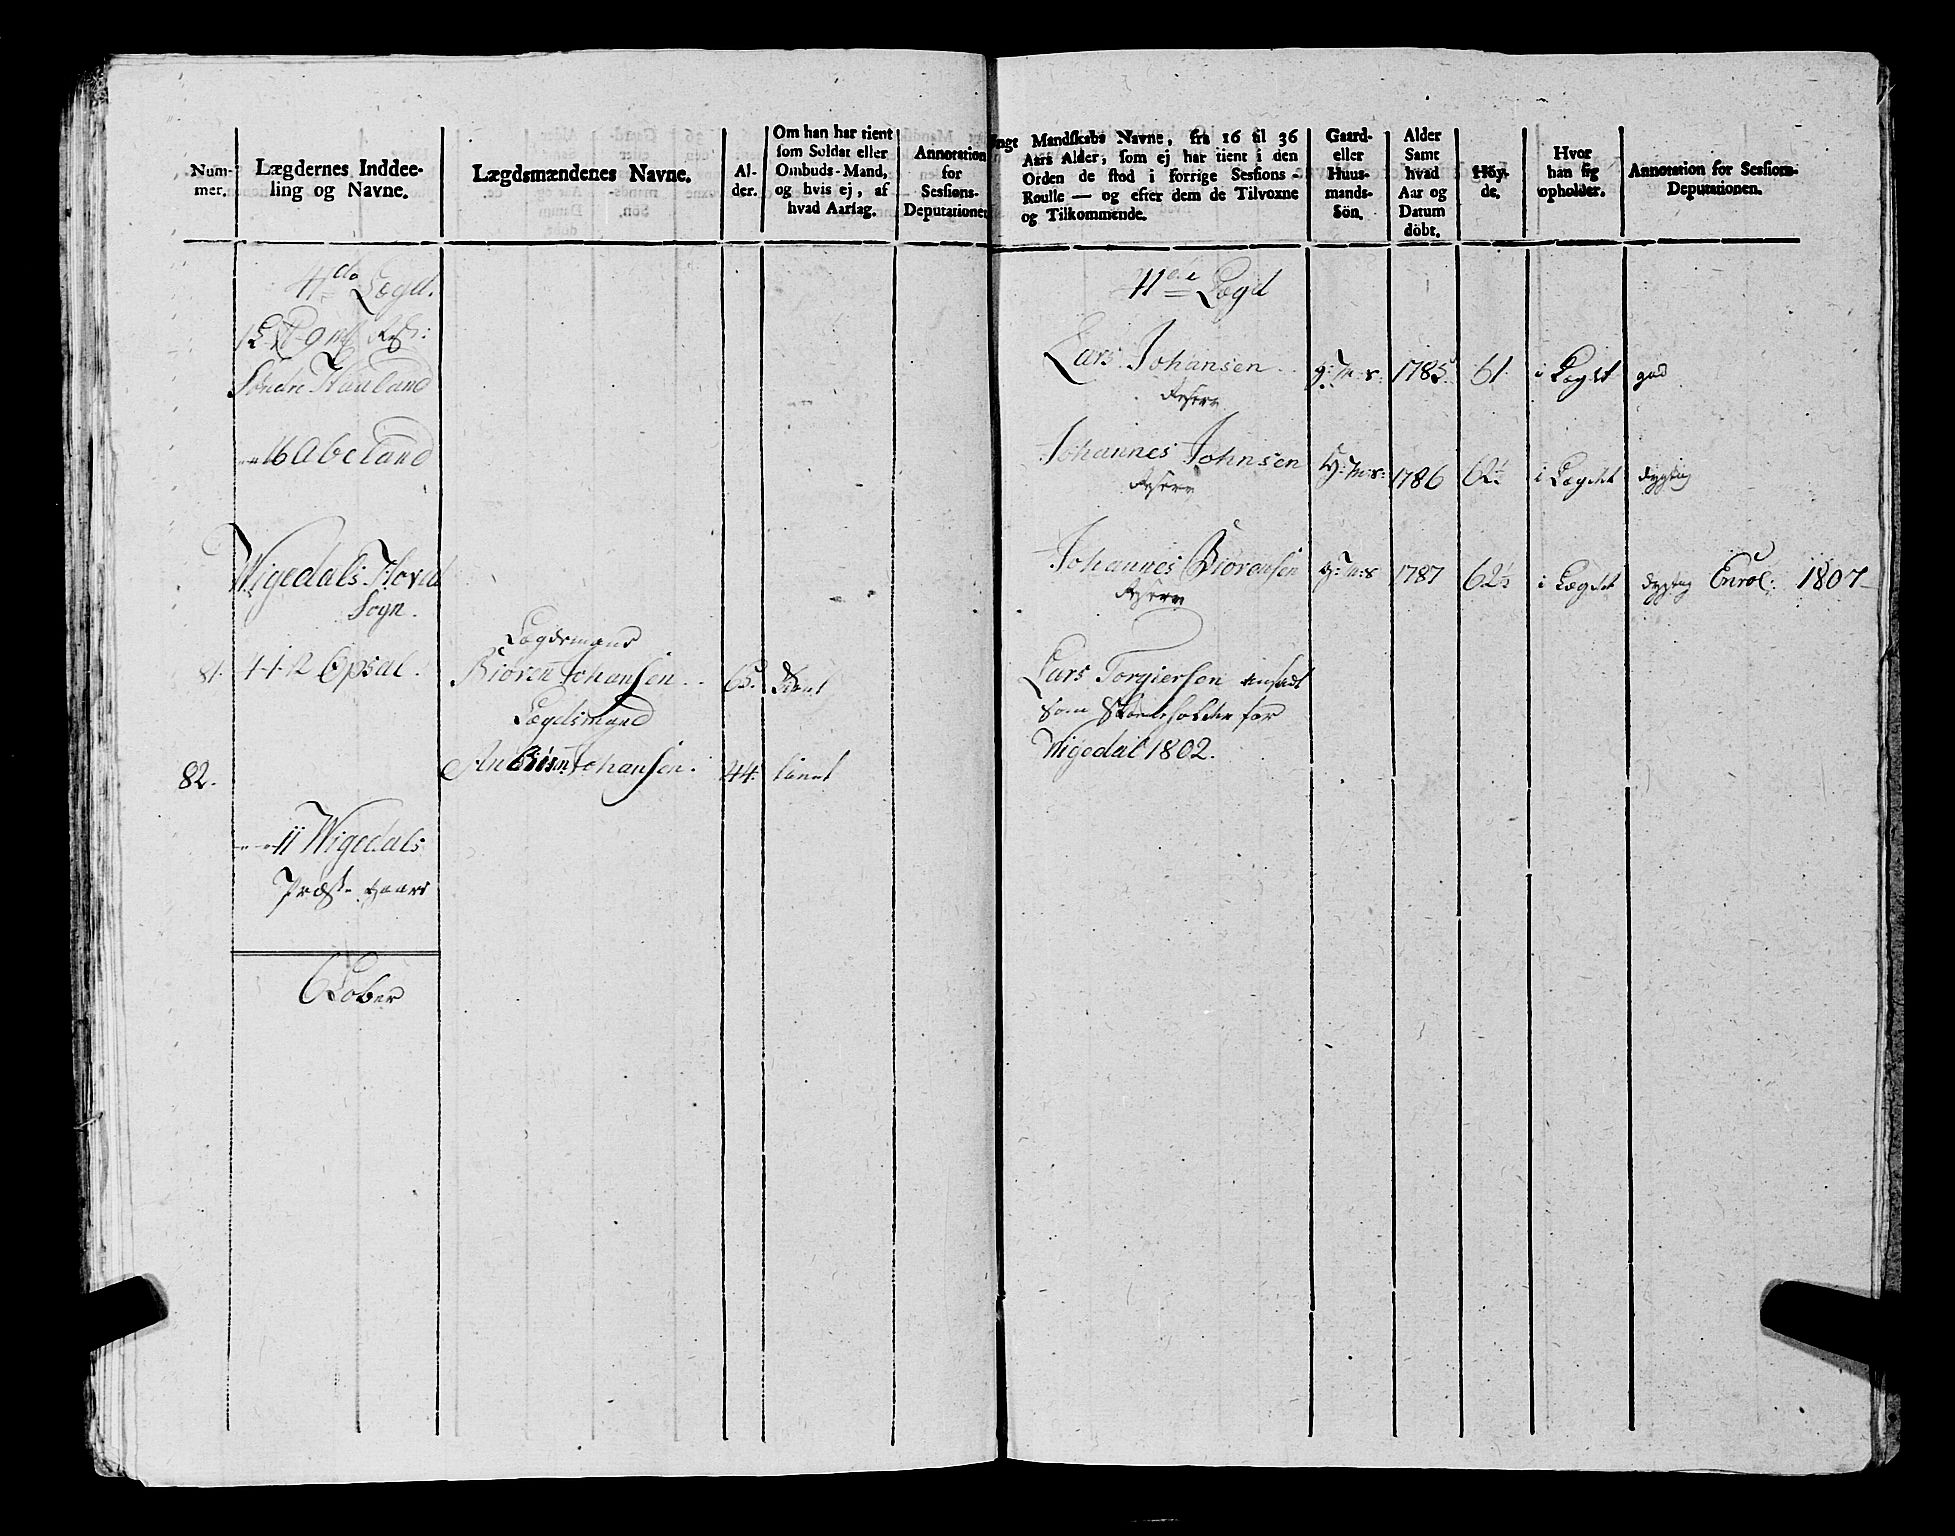 Num-
mer.
Lægdernes Inddee-
ling og Navne.
Lægdsmændenes Navne.
Al-
der.
Om han har tient
som Soldat eller
Ombuds-Mand,
og hvis ej, af
hvad Aarsag.
Annotation
for
Sessions-
Deputationen
4de Lægd.
Søndre Haaland
16 Abeland
Wigedals Hoved
Sogn.
Lægdsmand
81. 4-1-2 Opsal. Biøren Johansen. 65. tient
Lægdsmand
82. Johansen. 44. tient
11 Wigedals
Præste-gaard
ngt Mandskabs Navne, fra 16 til 36
Aars Alder, som ej har tient i den
Orden de stod i forrige Sessions-
Roulle — og efter dem de Tilvoxne
og Tilkommende.
Gaard-
eller
Huus-
mands-
Sön.
Alder
Samt
hvad
Aar og
Datum
döbt.
Höy-
de.
Hvor
han sig
opholder.
Annotation for Sessions-
Deputationen.
4de Lægd
Lars Johansen g:m:s: 1785 61 i Lægdet god
Reserv
Johannes Johnsen g:m:s: 1786 62½ i Lægdet dygtig
Reserv
Johannes Biørensen g:m:s 1787 62½ i Lægdet dygtig Enrol: 1807
Reserv
Lars Torgiersen ansadt
som Skoeleholder for
Wigedal 1802.